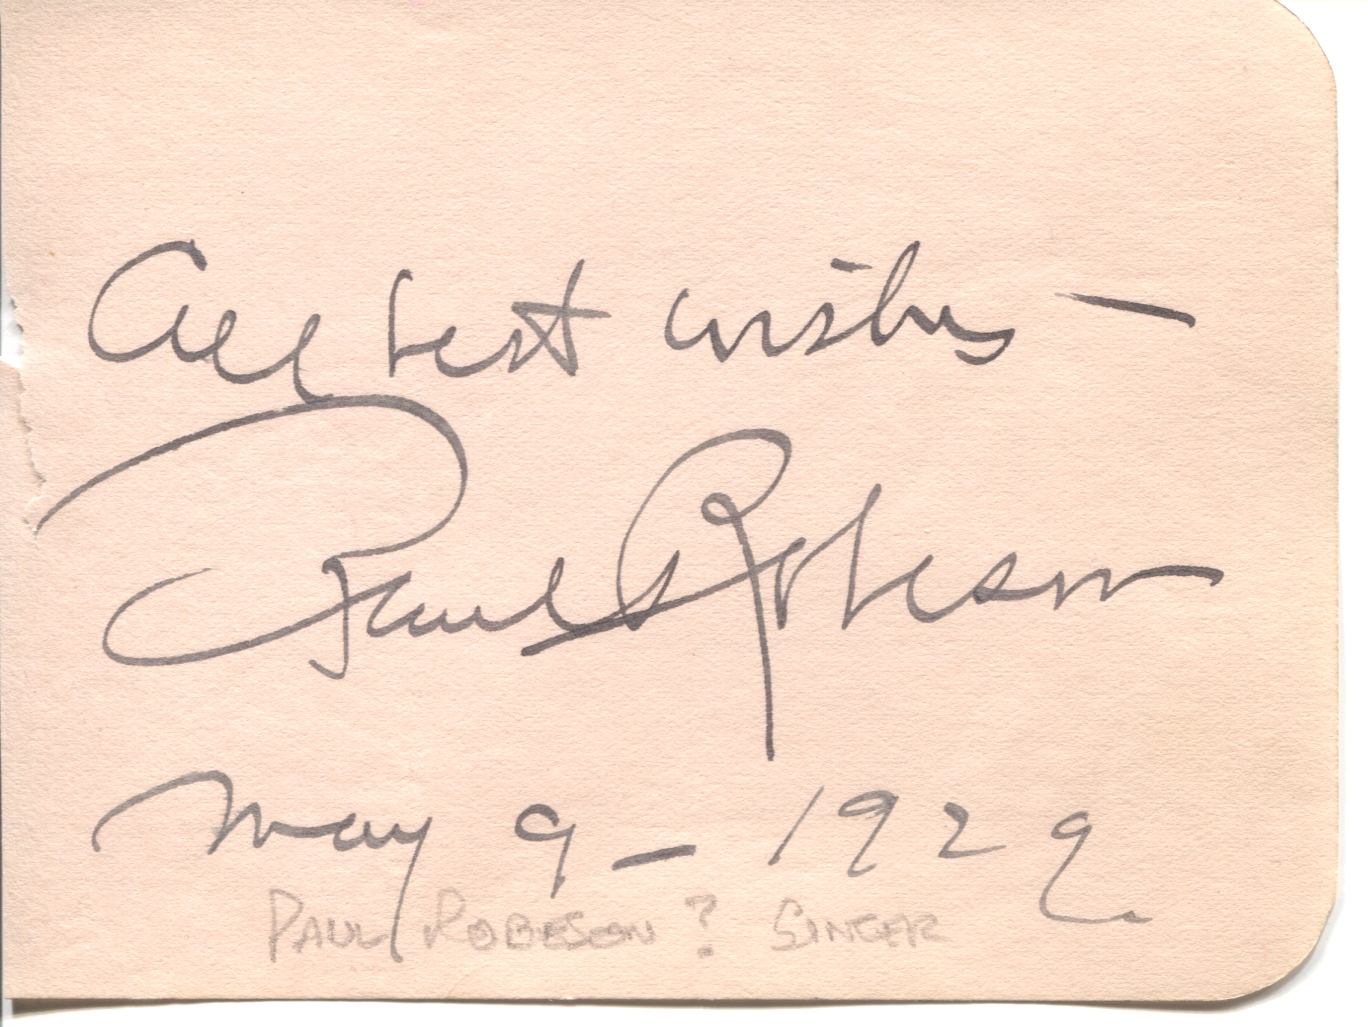 All best wishes –
Paul Robeson
May 9 – 1929
PAUL ROBESON? SINGER